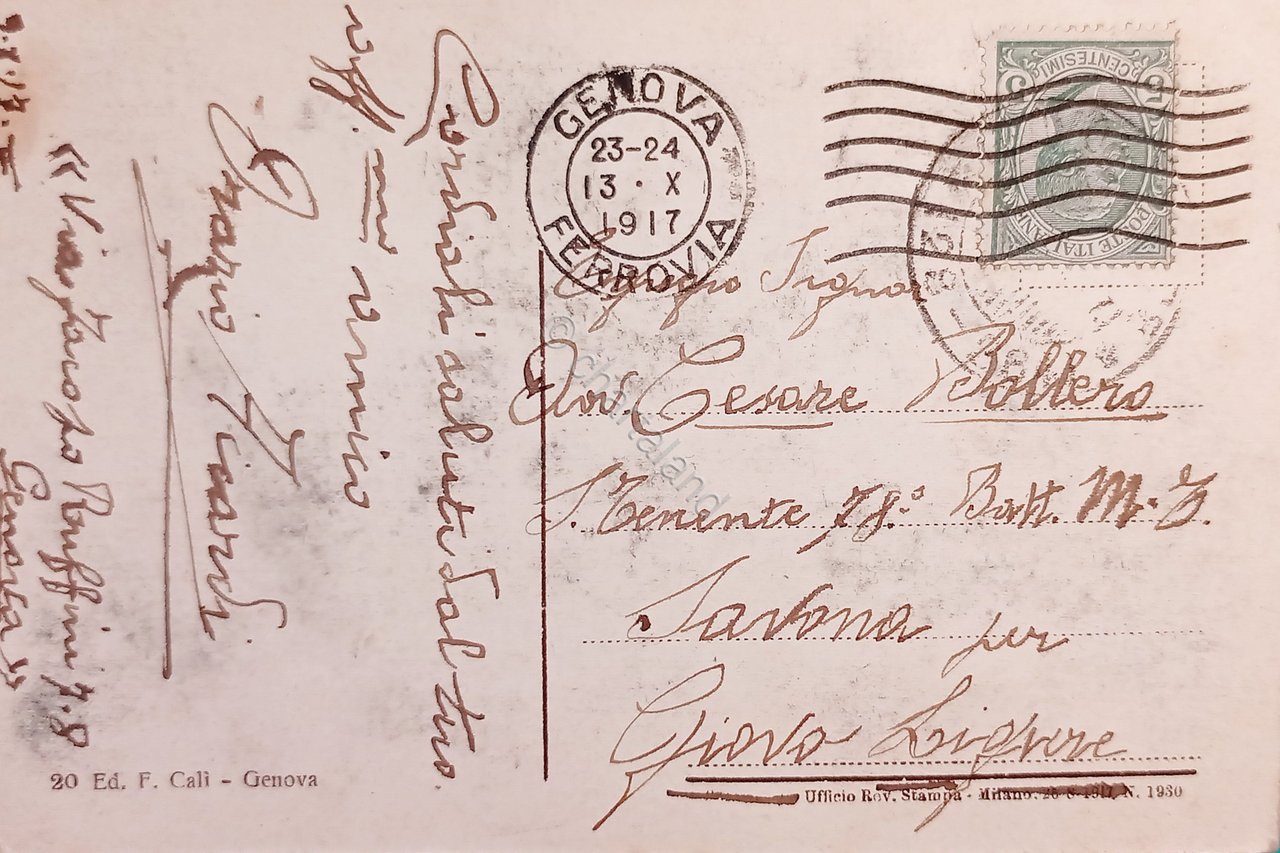 Cordiali saluti dal tuo
aff. mo amico
« Via Jacopo Ruffini 7.8
Genova »
GENOVA
23-24
13 · X
1917
FERROVIA
5 CENTESIMI 5
POSTE ITALIANE
Egregio Signor
Avv. Cesare Bollero
S. Tenente 78.º Batt. M. T.
Savona per
Giovo Ligure
20 Ed. F. Calì - Genova
Ufficio Rev. Stampa - Milano. 26-8-1917 N. 1930
© chartaland